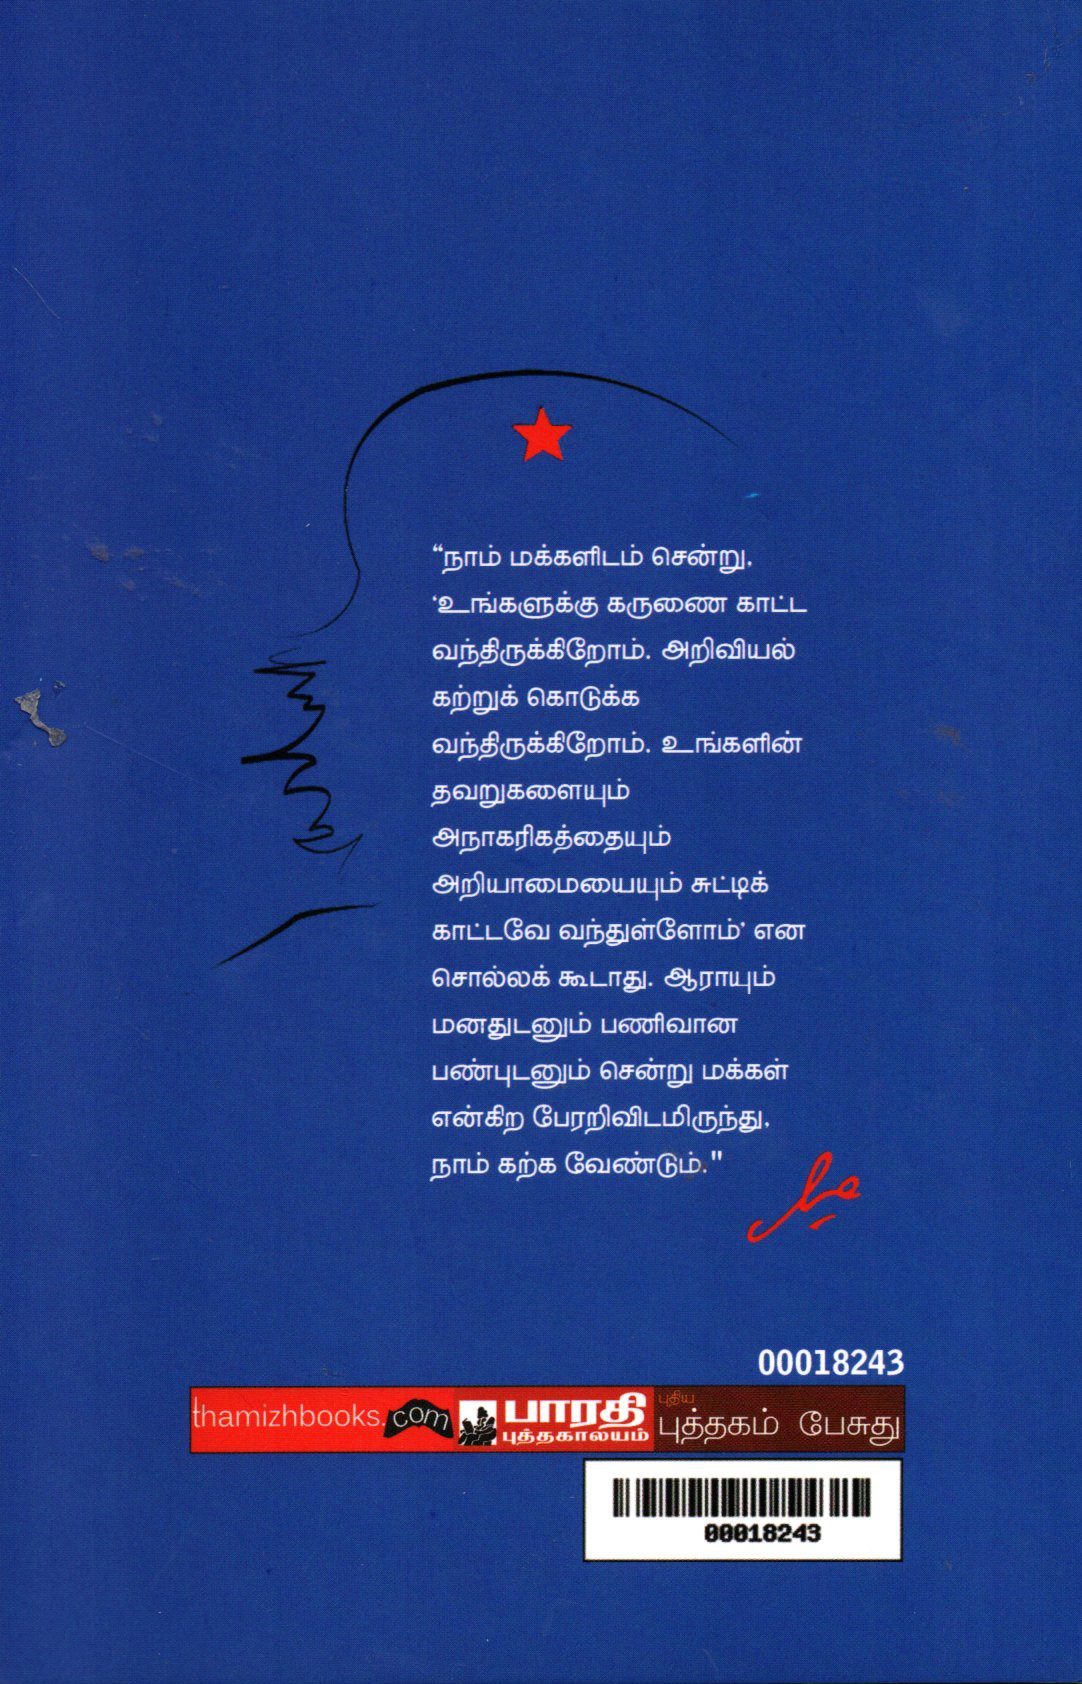 “நாம் மக்களிடம் சென்று,
‘உங்களுக்கு கருணை காட்ட
வந்திருக்கிறோம். அறிவியல்
கற்றுக் கொடுக்க
வந்திருக்கிறோம். உங்களின்
தவறுகளையும்
அநாகரிகத்தையும்
அறியாமையையும் சுட்டிக்
காட்டவே வந்துள்ளோம்’ என
சொல்லக் கூடாது. ஆராயும்
மனதுடனும் பணிவான
பண்புடனும் சென்று மக்கள்
என்கிற பேரறிவிடமிருந்து,
நாம் கற்க வேண்டும்."
00018243
thamizhbooks.com
பாரதி
புத்தகாலயம்
புதிய
புத்தகம் பேசுது
00018243